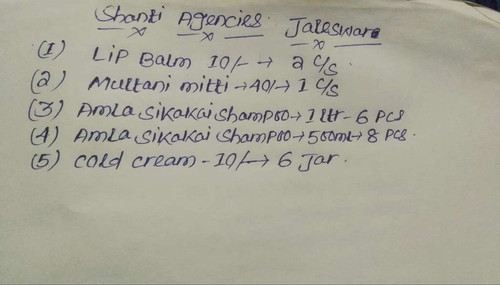 Shanti Agencies. Jaleswar
(1) LiP Balm 10/- → 2 c/s
(2) Multani mitti → 40/- → 1 c/s
(3) Amla Sikakai Shampoo → 1 ltr - 6 Pcs
(4) Amla Sikakai Shampoo → 500ml → 8 Pcs.
(5) Cold cream - 10/- → 6 Jar.